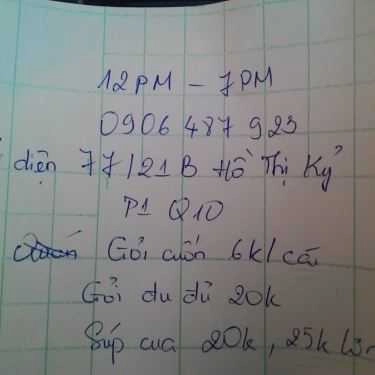 12PM - 7PM
0906 487 923
diện 77/21B Hồ Thị Kỷ
P1 Q10
Gỏi cuốn 6k/cái
Gỏi đu đủ 20k
Súp cua 20k, 25k lớn